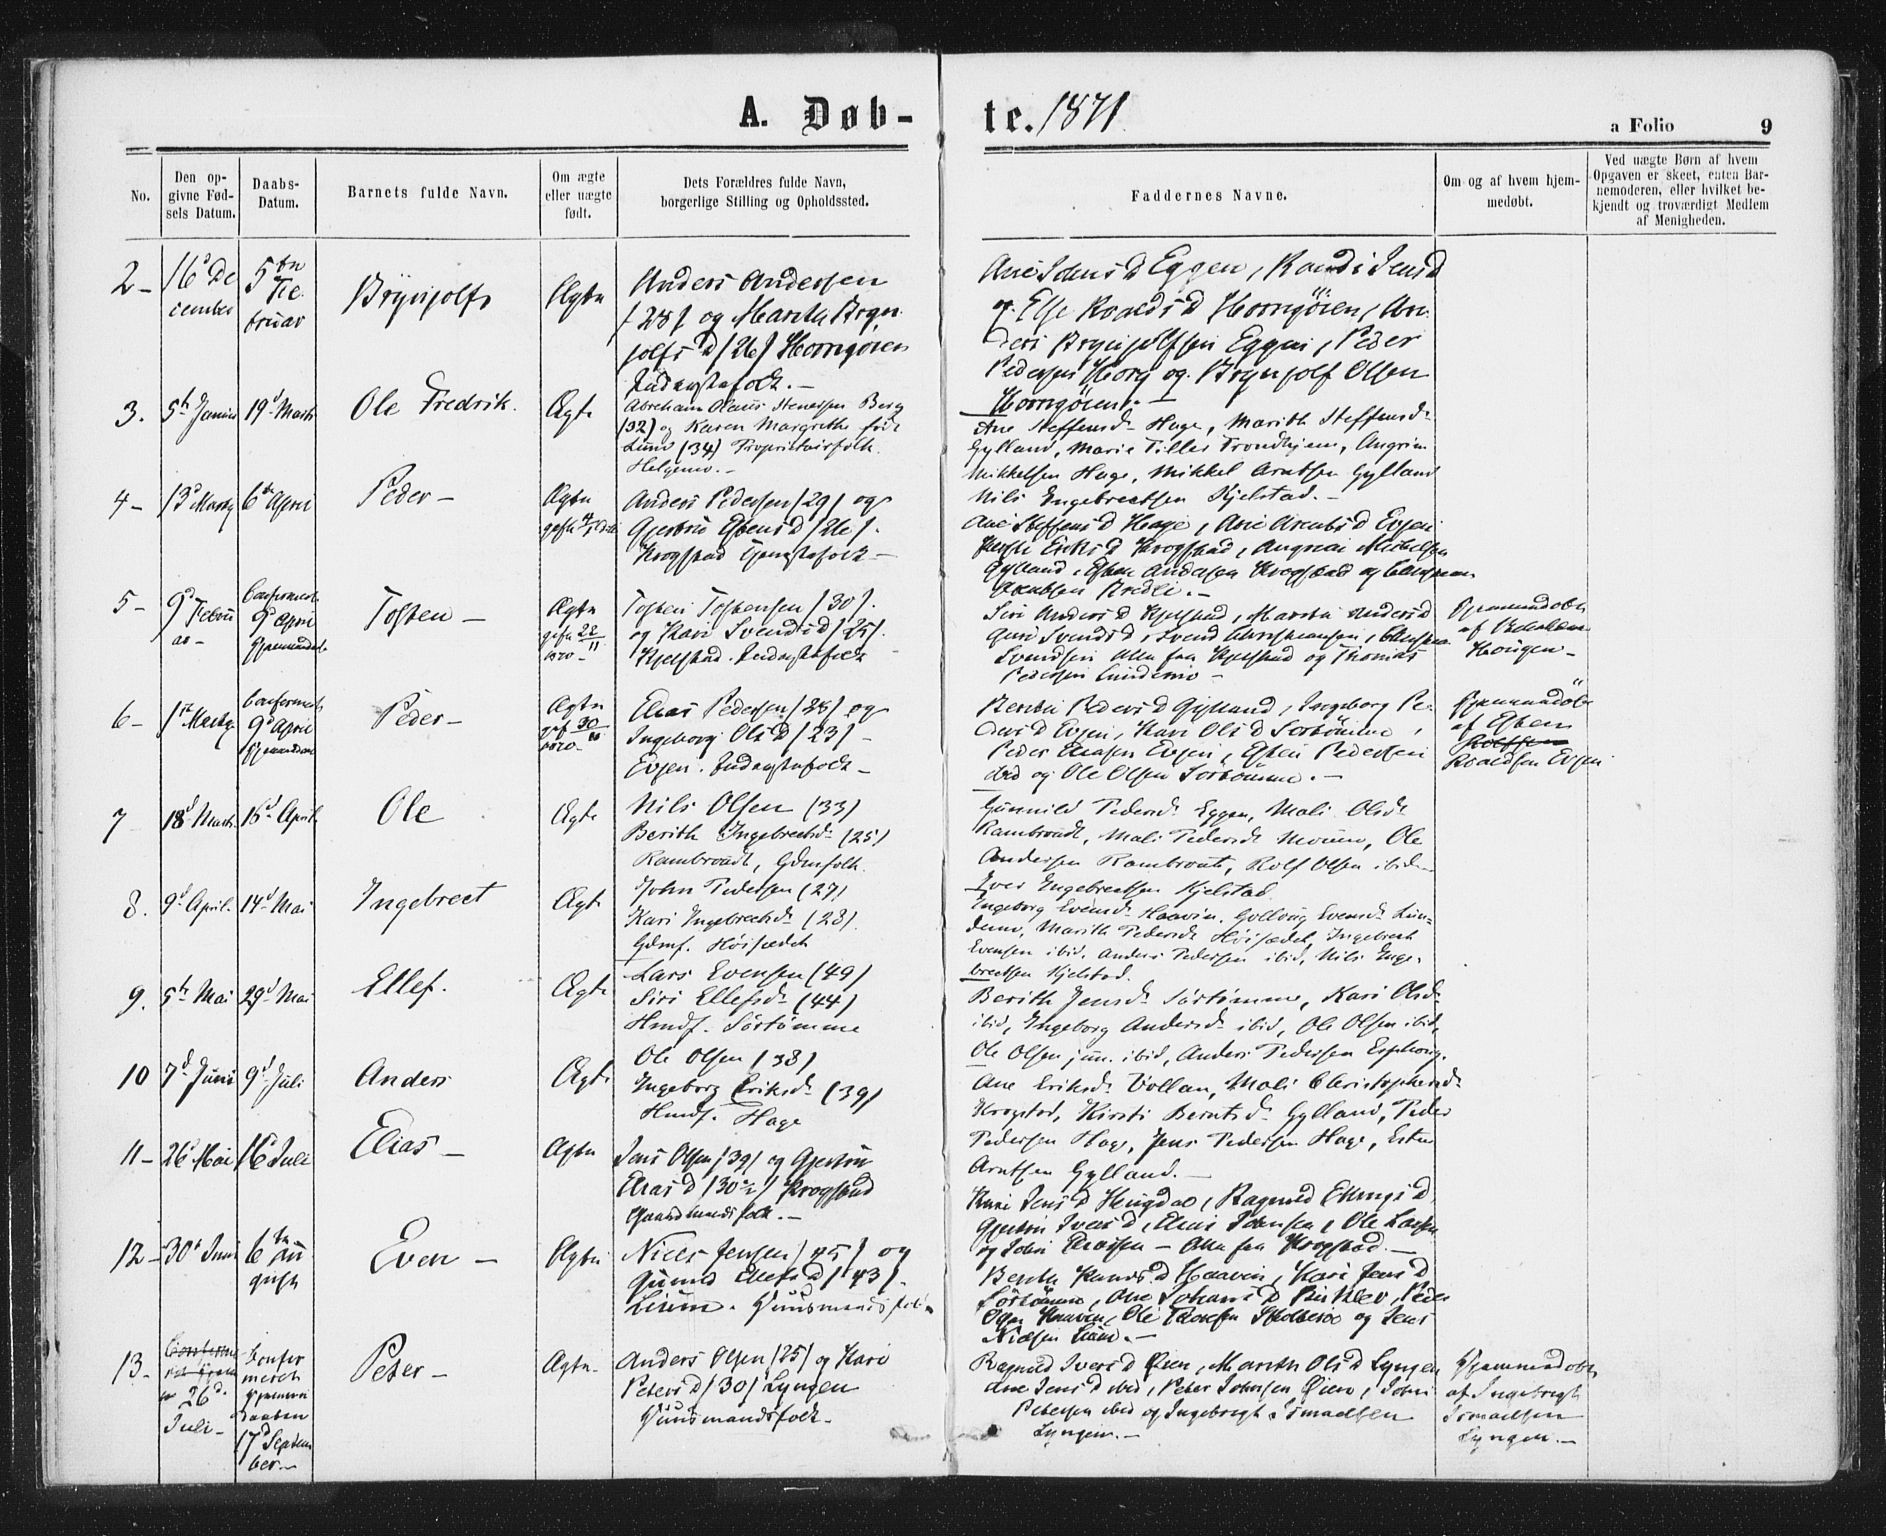 A. Døb-
te. 1871.
a Folio 9
No.
Den op-
givne Fød-
sels Datum.
Daabs-
Datum.
Barnets fulde Navn.
Om ægte
eller uægte
født.
Dets Forældres fulde Navn,
borgerlige Stilling og Opholdssted.
Faddernes Navne.
Om og af hvem hjem-
medøbt.
Ved uægte Børn af hvem
Opgaven er skeet, enten Bar-
nemoderen, eller hvilket be-
kjendt og troværdigt Medlem
af Menigheden.
2-
16d De
cember
5te
Fe
bruar
Brynjolf
Ægte
Anders Andersen
/28/ og Marith Bryn
jolfsd /26/ Horngøien
Indengstfolk.-
Ane Johnsd Eggen, Randi Jensd
og Else Roaldsd Horngøien, An
ders Brynjolfsen Eggen, Peder
Pedersen Horg og Brynjolf Olsen
Horngøien.-
3.
5te Januar
19d Marts
Ole Fredrik.
Ægte
Abraham Olaus Stenersen Berg
(32) og Karen Margrethe født
Lund (34) Proprietairfolk
Helgemo.-
Ane Steffensd. Hage, Marith Steffensd.
Gylland, Marie Tiller Trondhjem, Angrim
Mikkelsen Hage, Mikkel Arntsen Gylland
Nils Ingebrectsen Kjelstad.-
4-
13d Marts
6te April
Peder-
Ægte
Anders Pedersen /29/ og
Gjertru Estensd /26/.
Krogstad
Ane Steffensd Hage, Ane Arntsd Evjen
Kirsti Eriksd Krogstad, Angrim Mikkelsen
Gylland, Esten Andersen Krogstad og
Arntsen
5-
9d Febru
ar-
Confirmert
9d April
Tosten-
Ægte
gift 22/11
1870-
Tosten Tostensen /30/.
og Kari Svendsd /25/.
Kjelstad. Indengstfolk
Siri Andersd Kjelstad, Marith Andersd
Guri Svendsd, Svend Christiansen,
Svendsen alle fra Kjelstad og Thomas
Pedersen Lundemo-
Hjemmedøbt
af
Hougen-
6-
1ste Marts
Confirmert
9d April
Peder-
Ægte
gift 30/10
1870-
Elias Pedersen /28/ og
Ingeborg Olsd /23/-
Evjen. Indengstfolk-
Berith Pedersd Gylland, Ingeborg Pe-
dersd Evjen, Kari Olsd Sørtømme,
Peder Eliasen Evjen, Esten Pedersen
ibid og Ole Olsen Sørtømme.-
Hjemmedøbt
af Esten
Roaldsen Evjen
7
18d Marts
16d April
Ole
Ægte
Nils Olsen (33)
Berith Ingebrectsd. (25)
Rambraut, Gdmfolk.
Gunnild Pedersd. Eggen, Mali Olsd.
Rambraut, Mali Pedersd. Moum, Ole
Andersen Rambraut, Rolf Olsen ibid.
Iver Ingebrectsen Kjelstad.
8.
9d April.
14d Mai
Ingebrect
Ægte
John Pedersen (27)
Kari Ingebrectsd. (28).
Gdmf. Høisædet
Ingeborg Evensd. Haavin, Gollaug Evensd. Lun-
demo, Marith Pedersd. Høisædet, Ingebrect
Evensen ibid, Anders Pedersen ibid, Nils Inge-
brectsen Kjelstad.
9.
5te Mai
29d Mai
Ellef.
Ægte
Lars Evensen (49)
Siri Ellefsd. (44)
Hmdf. Sørtømme
Berith Jensd. Sørtømme, Kari Olsd.
ibid, Ingeborg Andersd. ibid, Ole Olsen ibid,
Ole Olsen jun. ibid, Anders Pedersen Esphaug.
10
7d Juni
9d Juli
Anders
Ægte
Ole Olsen (38)
Ingeborg Eriksd. (39)
Hmdf. Hage
Ane Eriksd. Vollan, Mali Christophersd.
Krogstad, Kirsti Berntsd. Gylland, Peder
Pedersen Hage, Jens Pedersen Hage, Esten
Arntsen Gylland.-
11-
26d Mai
16d Juli
Elias-
Ægte
Jens Olsen /39/ og Gjertru
Eliasd /30/ Krogstad
Gaardmandsfolk.-
Kari Jensd Haugdal, Ragnild Ellingsd
Gjertru Iversd, Elias Johnsen, Ole Larsen
og John Eliassen - alle fra Krogstad.-
12-
30d Juni
6te Au
gust
Even-
Ægte
Niels Jensen /45/ og
Gunild Ellefsd /43/.
Lium. Huusmandsfolk-
Berith Hansd Haavin, Kari Jensd
Sørtømme, Ane Johansd
Haavin, Ole og Jens
Nielsen Lium.-
13-
26d
Juli-
Confir
meret
17d Septem
ber-
Peter-
Ægte
Anders Olsen /25/ og Kari
Petersd /30/ Lyngen
Huusmandsfolk-
Ragnild Iversd Øien, Marith Olsd Lyngen
Ane Jensd ibid, Peter Johnsen Øien, John
Petersen ibid og Ingebrigt Ismaelsen
Lyngen.-
Hjemmedøbt
af Ingebrigt
Ismaelsen
Lyngen.-